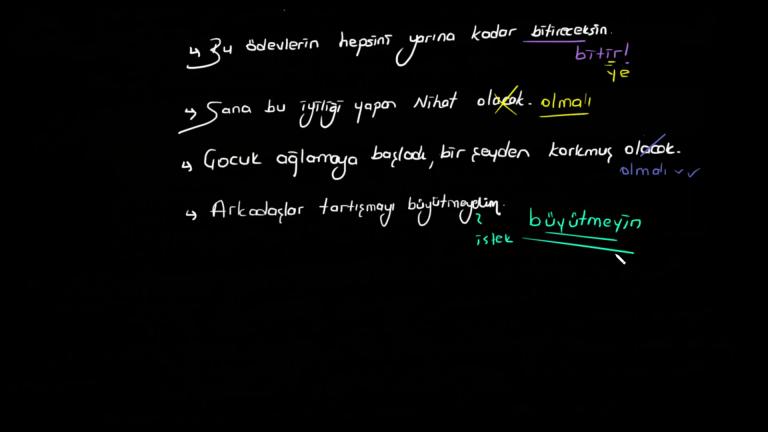 → Bu ödevlerin hepsini yarına kadar bitireceksin.
bitir!
ye
→ Sana bu iyiliği yapan Nihat olacak. olmalı
→ Çocuk ağlamaya başladı, bir şeyden korkmuş olacak.
olmalı ✓✓
→ Arkadaşlar tartışmayı büyütmeydim.
istek büyütmeyin